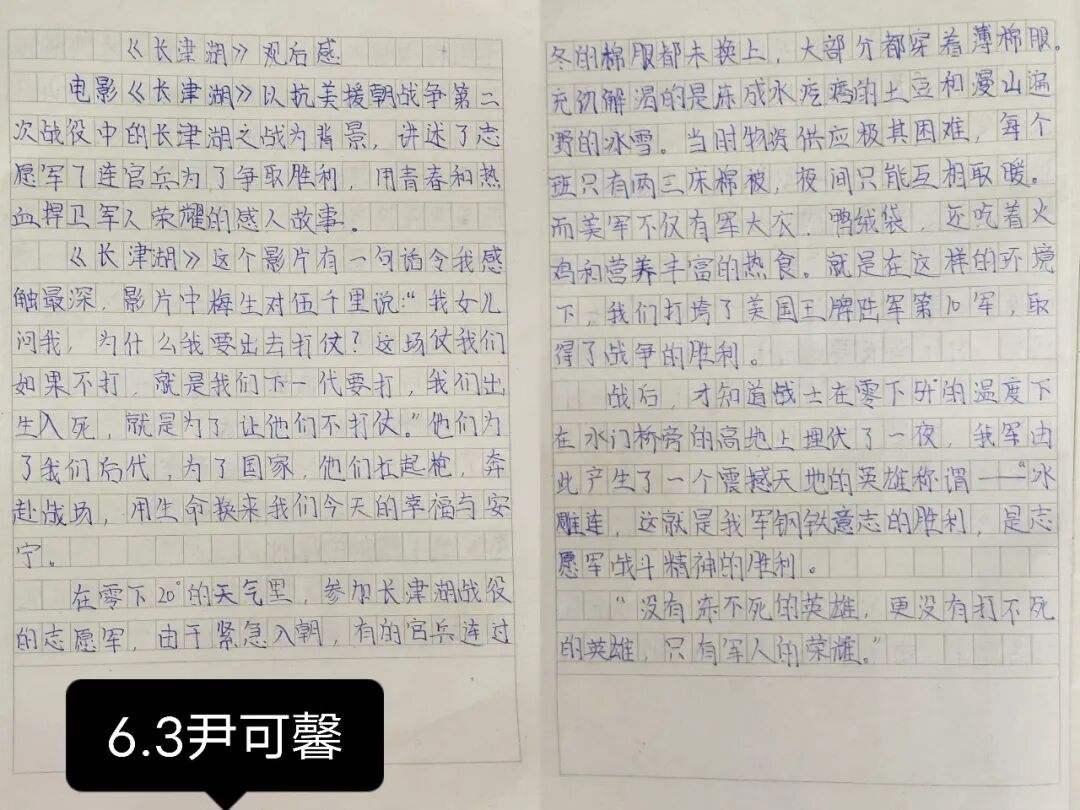 《长津湖》观后感
电影《长津湖》以抗美援朝战争第二
次战役中的长津湖之战为背景，讲述了志
愿军7连官兵为了争取胜利，用青春和热
血捍卫军人荣耀的感人故事。
《长津湖》这个影片有一句话令我感
触最深，影片中梅生对伍千里说：“我女儿
问我，为什么我要出去打仗？这场仗我们
如果不打，就是我们下一代要打，我们出
生入死，就是为了让他们不打仗。”他们为
了我们后代，为了国家，他们扛起枪，奔
赴战场，用生命换来我们今天的幸福与安
宁。
在零下20°的天气里，参加长津湖战役
的志愿军，由于紧急入朝，有的官兵连过
冬的棉服都未换上，大部分都穿着薄棉服。
充饥解渴的是冻成冰疙瘩的土豆和漫山遍
野的冰雪。当时物资供应极其困难，每个
班只有两三床棉被，夜间只能互相取暖。
而美军不仅有军大衣、鸭绒袋，还吃着火
鸡和营养丰富的热食。就是在这样的环境
下，我们打垮了美国王牌陆军第10军，取
得了战争的胜利。
战后，才知道战士在零下的温度下
在水门桥旁的高地上埋伏了一夜，我军由
此产生了一个震撼天地的英雄称谓——“冰
雕连，这就是我军钢铁意志的胜利，是志
愿军战斗精神的胜利。
“没有冻不死的英雄，更没有打不死
的英雄，只有军人的荣耀。”
6.3尹可馨